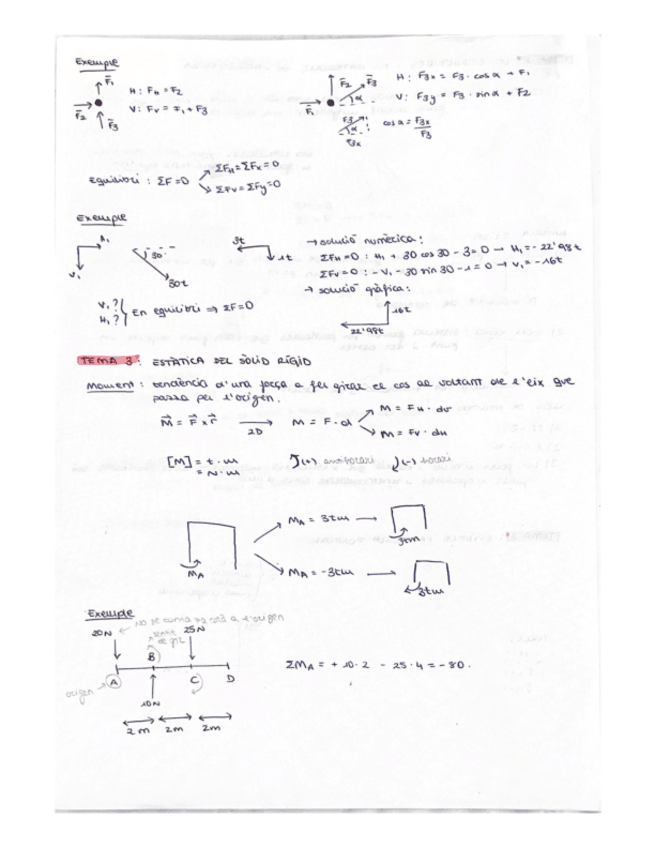 Exemple
F₁
F₂
F₃
H: F_H = F₂
V: F_V = F₁ + F₃
F₁
F₂
F₃
α
H: F₃x = F₃ · cos α + F₁
V: F₃y = F₃ · sin α + F₂
F₃
α
F₃x
cos α = F₃x / F₃
Equilibri: ΣF = 0
ΣF_H = ΣFx = 0
ΣFv = ΣFy = 0
Exemple
H₁
V₁
30°
30t
3t
1t
→ solució numèrica:
ΣF_H = 0 : H₁ + 30 cos 30 - 3 = 0 → H₁ = -22'98t
ΣFv = 0 : - V₁ - 30 sin 30 - 1 = 0 → V₁ = -16t
→ solució gràfica:
16t
22'98t
V₁?
H₁?
En equilibri ⇒ ΣF = 0
TEMA 3: ESTÀTICA DEL SÒLID RÍGID
Moment: tendència d'una força a fer girar el cos al voltant de l'eix que
passa per l'origen.
M = F x r
2D
M = F · d
M = F_H · dv
M = Fv · d_H
[M] = t · m
= N · m
(+) antihorari
(-) horari
M_A
M_A = 3tm
3tm
M_A = -3tm
3tm
Exemple
20N
No se suma pq està a l'origen
sentit
de gir
25N
A
B
C
D
origen
10N
2m
2m
2m
ΣM_A = + 10 · 2 - 25 · 4 = -80.